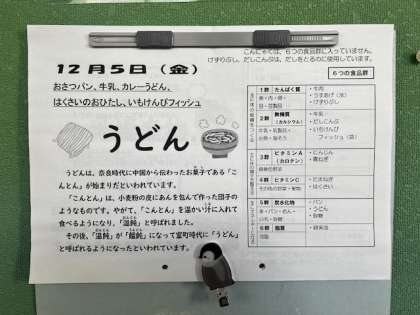 こんにゃくは、6つの食品群に入っていません。
けずりぶし、だしこんぶは、だしをとるのに使用しています。
12月5日（金）
6つの食品群
おさつパン、牛乳、カレーうどん、
はくさいのおひたし、いちけんぴフィッシュ
うどん
うどんは、奈良時代に中国から伝わったお菓子である「こ
んとん」が始まりだといわれています。
「こんとん」は、小麦粉の皮にあんを包んで作った団子の
ようなものです。やがて、「こんとん」を温かい汁に入れて
食べるようになり、「温飩」と呼ばれました。
その後、「温飩」が「饂飩」になって室町時代に「うどん」
と呼ばれるようになったといわれています。
1群 たんぱく質
魚・肉・卵・
豆・豆製品
・牛肉
・うすあげ（水）
・けずりぶし
2群 無機質
（カルシウム）
牛乳・乳製品・
小魚・海そう
・牛乳
・だしこんぶ
・いちけんぴ
フィッシュ（袋）
3群 ビタミンA
（カロテン）
緑黄色野菜
・にんじん
・青ねぎ
4群 ビタミンC
その他の野菜・果物
・たまねぎ
・はくさい
5群 炭水化物
米・パン・めん・
いも・砂糖
・パン
・うどん
・砂糖
6群 脂質
油脂